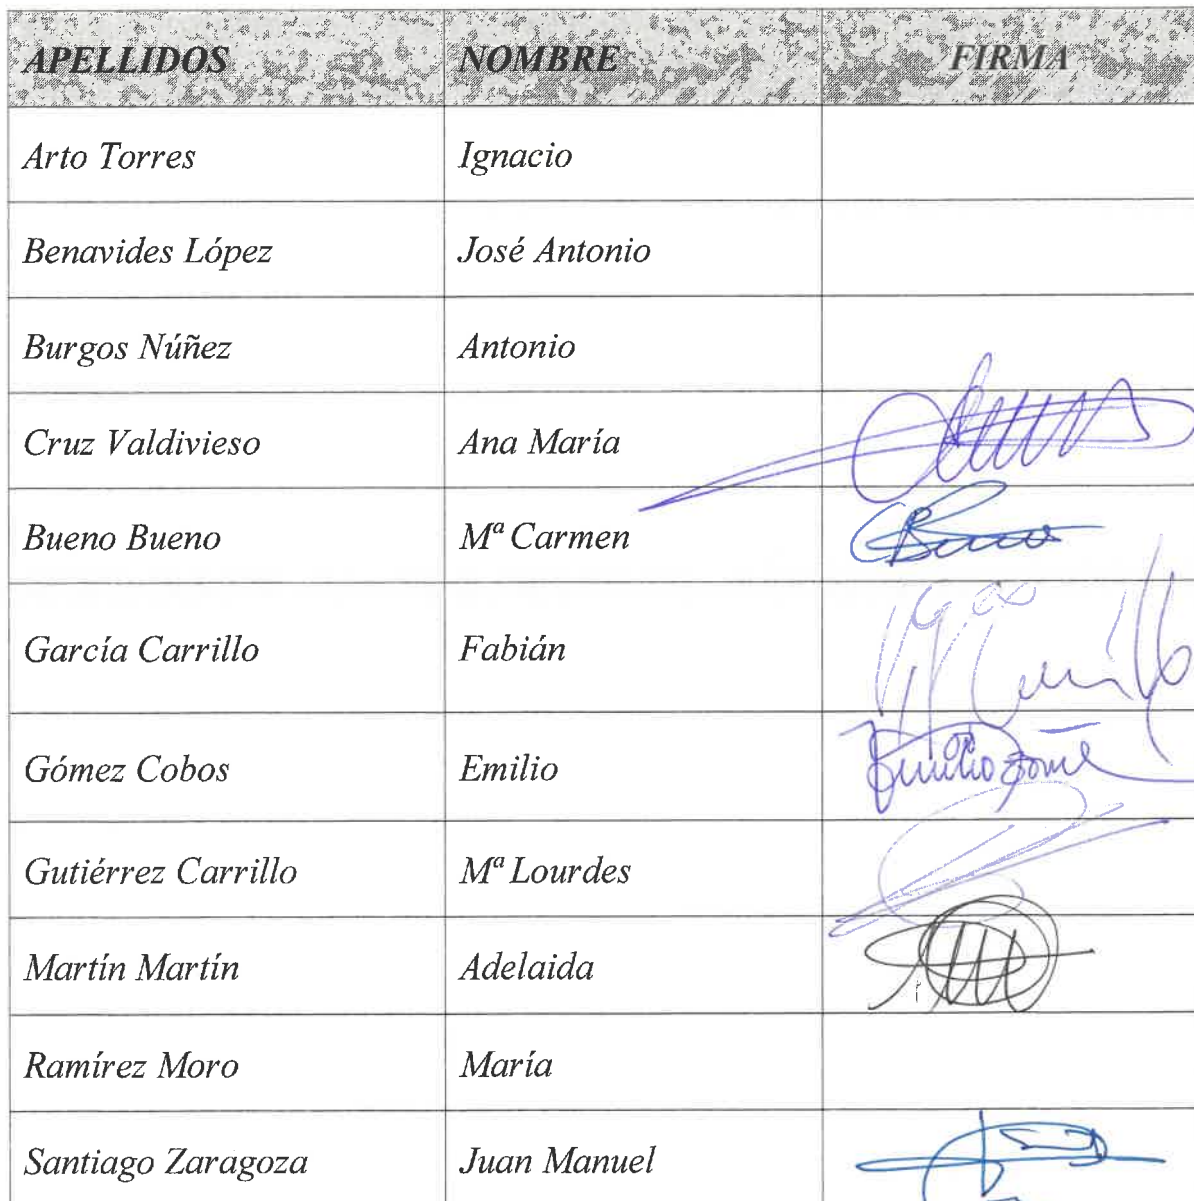 APELLIDOS NOMBRE FIRMA
Arto Torres Ignacio
Benavides López José Antonio
Burgos Núñez Antonio
Cruz Valdivieso Ana María
Bueno Bueno Mª Carmen
García Carrillo Fabián
Gómez Cobos Emilio
Gutiérrez Carrillo Mª Lourdes
Martín Martín Adelaida
Ramírez Moro María
Santiago Zaragoza Juan Manuel